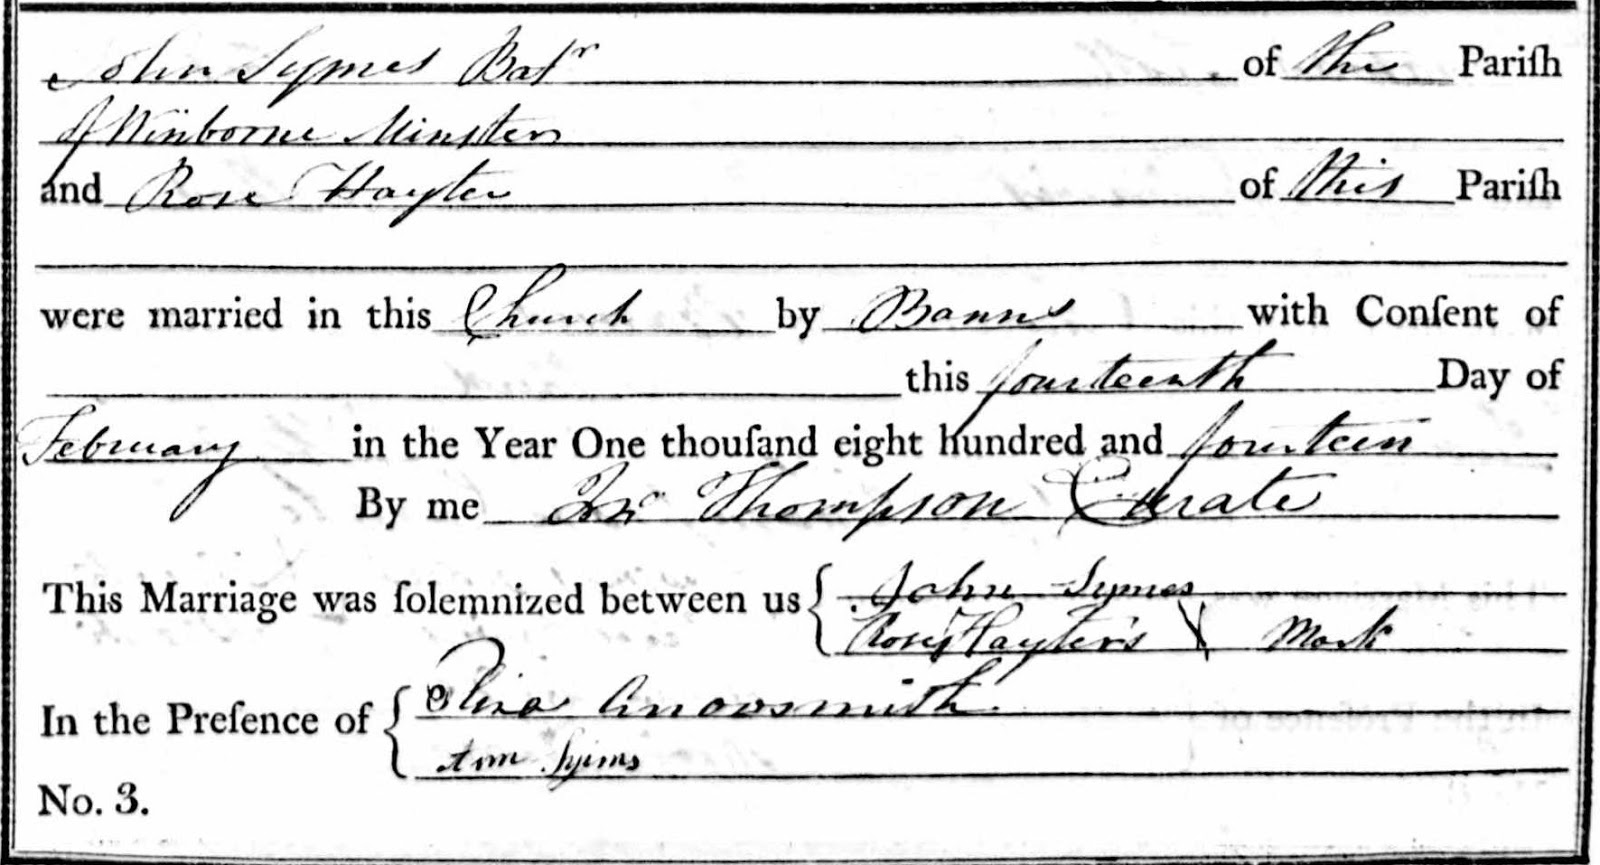 John Symes Batr of the Pariſh
of Winborne Minster
and Rose Hayter of this Pariſh
were married in this Church by Banns with Conſent of
this fourteenth Day of
February in the Year One thouſand eight hundred and fourteen
By me Thompson Curate
This Marriage was ſolemnized between us { John Symes
Rosey Hayter's X Mark
In the Preſence of { Eliza Arrowsmith
Symes
No. 3.